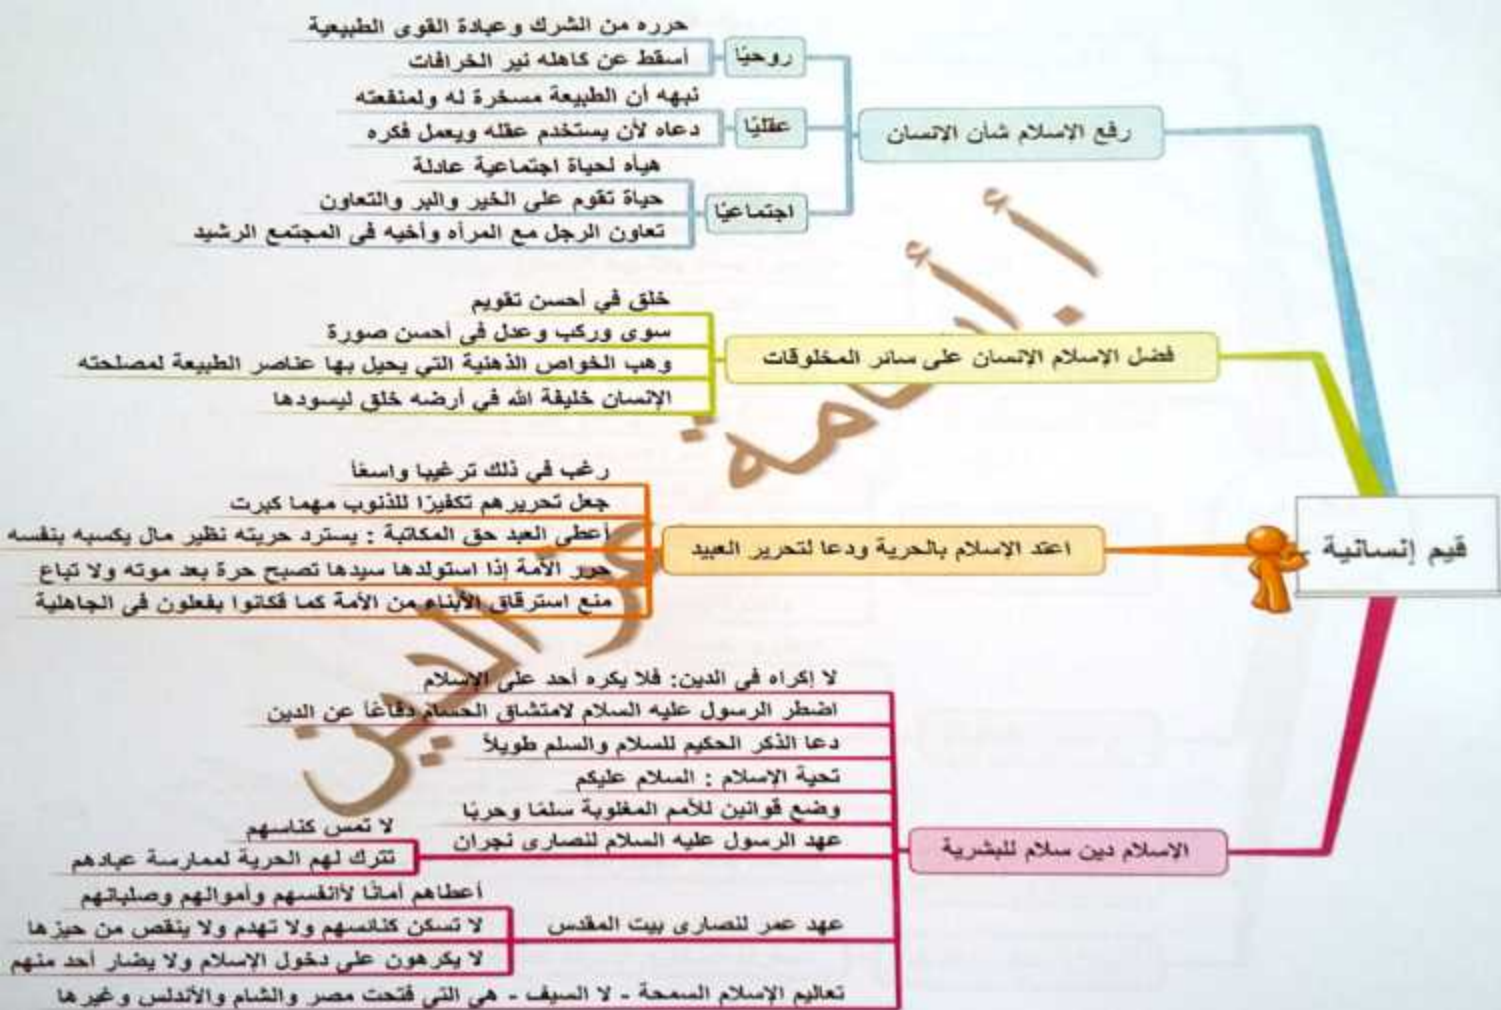 قيم إنسانية
رفع الإسلام شأن الانسان
روحيًا
حرره من الشرك وعبادة القوى الطبيعية
أسقط عن كاهله نير الخرافات
عقليًا
نبهه أن الطبيعة مسخرة له ولمنفعته
دعاه لأن يستخدم عقله ويعمل فكره
اجتماعيًا
هيأه لحياة اجتماعية عادلة
حياة تقوم على الخير والبر والتعاون
تعاون الرجل مع المرأه وأخيه فى المجتمع الرشيد
فضل الإسلام الإنسان على سائر المخلوقات
خلق في أحسن تقويم
سوى وركب وعدل فى أحسن صورة
وهب الخواص الذهنية التي يحيل بها عناصر الطبيعة لمصلحته
الإنسان خليفة الله في أرضه خلق ليسودها
اعتد الإسلام بالحرية ودعا لتحرير العبيد
رغب في ذلك ترغيبا واسعًا
جعل تحريرهم تكفيرًا للذنوب مهما كبرت
أعطى العبد حق المكاتبة : يسترد حريته نظير مال يكسبه بنفسه
حرر الأمة إذا استولدها سيدها تصبح حرة بعد موته ولا تباع
منع استرقاق الأبناء من الأمة كما فكانوا يفعلون فى الجاهلية
الاسلام دين سلام للبشرية
لا إكراه فى الدين: فلا يكره أحد على الإسلام
اضطر الرسول عليه السلام لامتشاق الحسام دفاعًا عن الدين
دعا الذكر الحكيم للسلام والسلم طويلاً
تحية الإسلام : السلام عليكم
وضع قوانين للأمم المغلوبة سلمًا وحربًا
عهد الرسول عليه السلام لنصارى نجران
لا تمس كناسهم
تترك لهم الحرية لممارسة عبادهم
عهد عمر لنصارى بيت المقدس
أعطاهم أمانًا لأانفسهم وأموالهم وصلبانهم
لا تسكن كنائسهم ولا تهدم ولا ينقص من حيزها
لا يكرهون على دخول الاسلام ولا يضار أحد منهم
تعاليم الإسلام السمحة - لا السيف - هى التى فتحت مصر والشام والأندلس وغيرها
أ. أسامة عز الدين